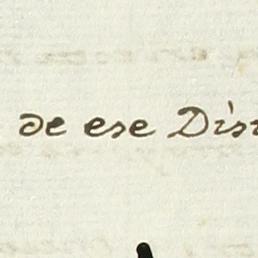 de ese Dis